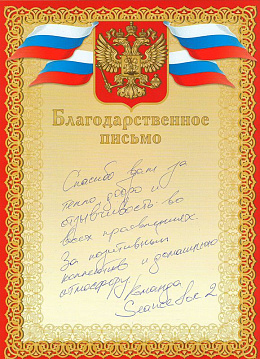 Благодарственное
письмо
Спасибо вам за
тепло, добро и
отзывчивость во
всех
За позитивный
коллектив и домашнюю
атмосферу! Команда
2